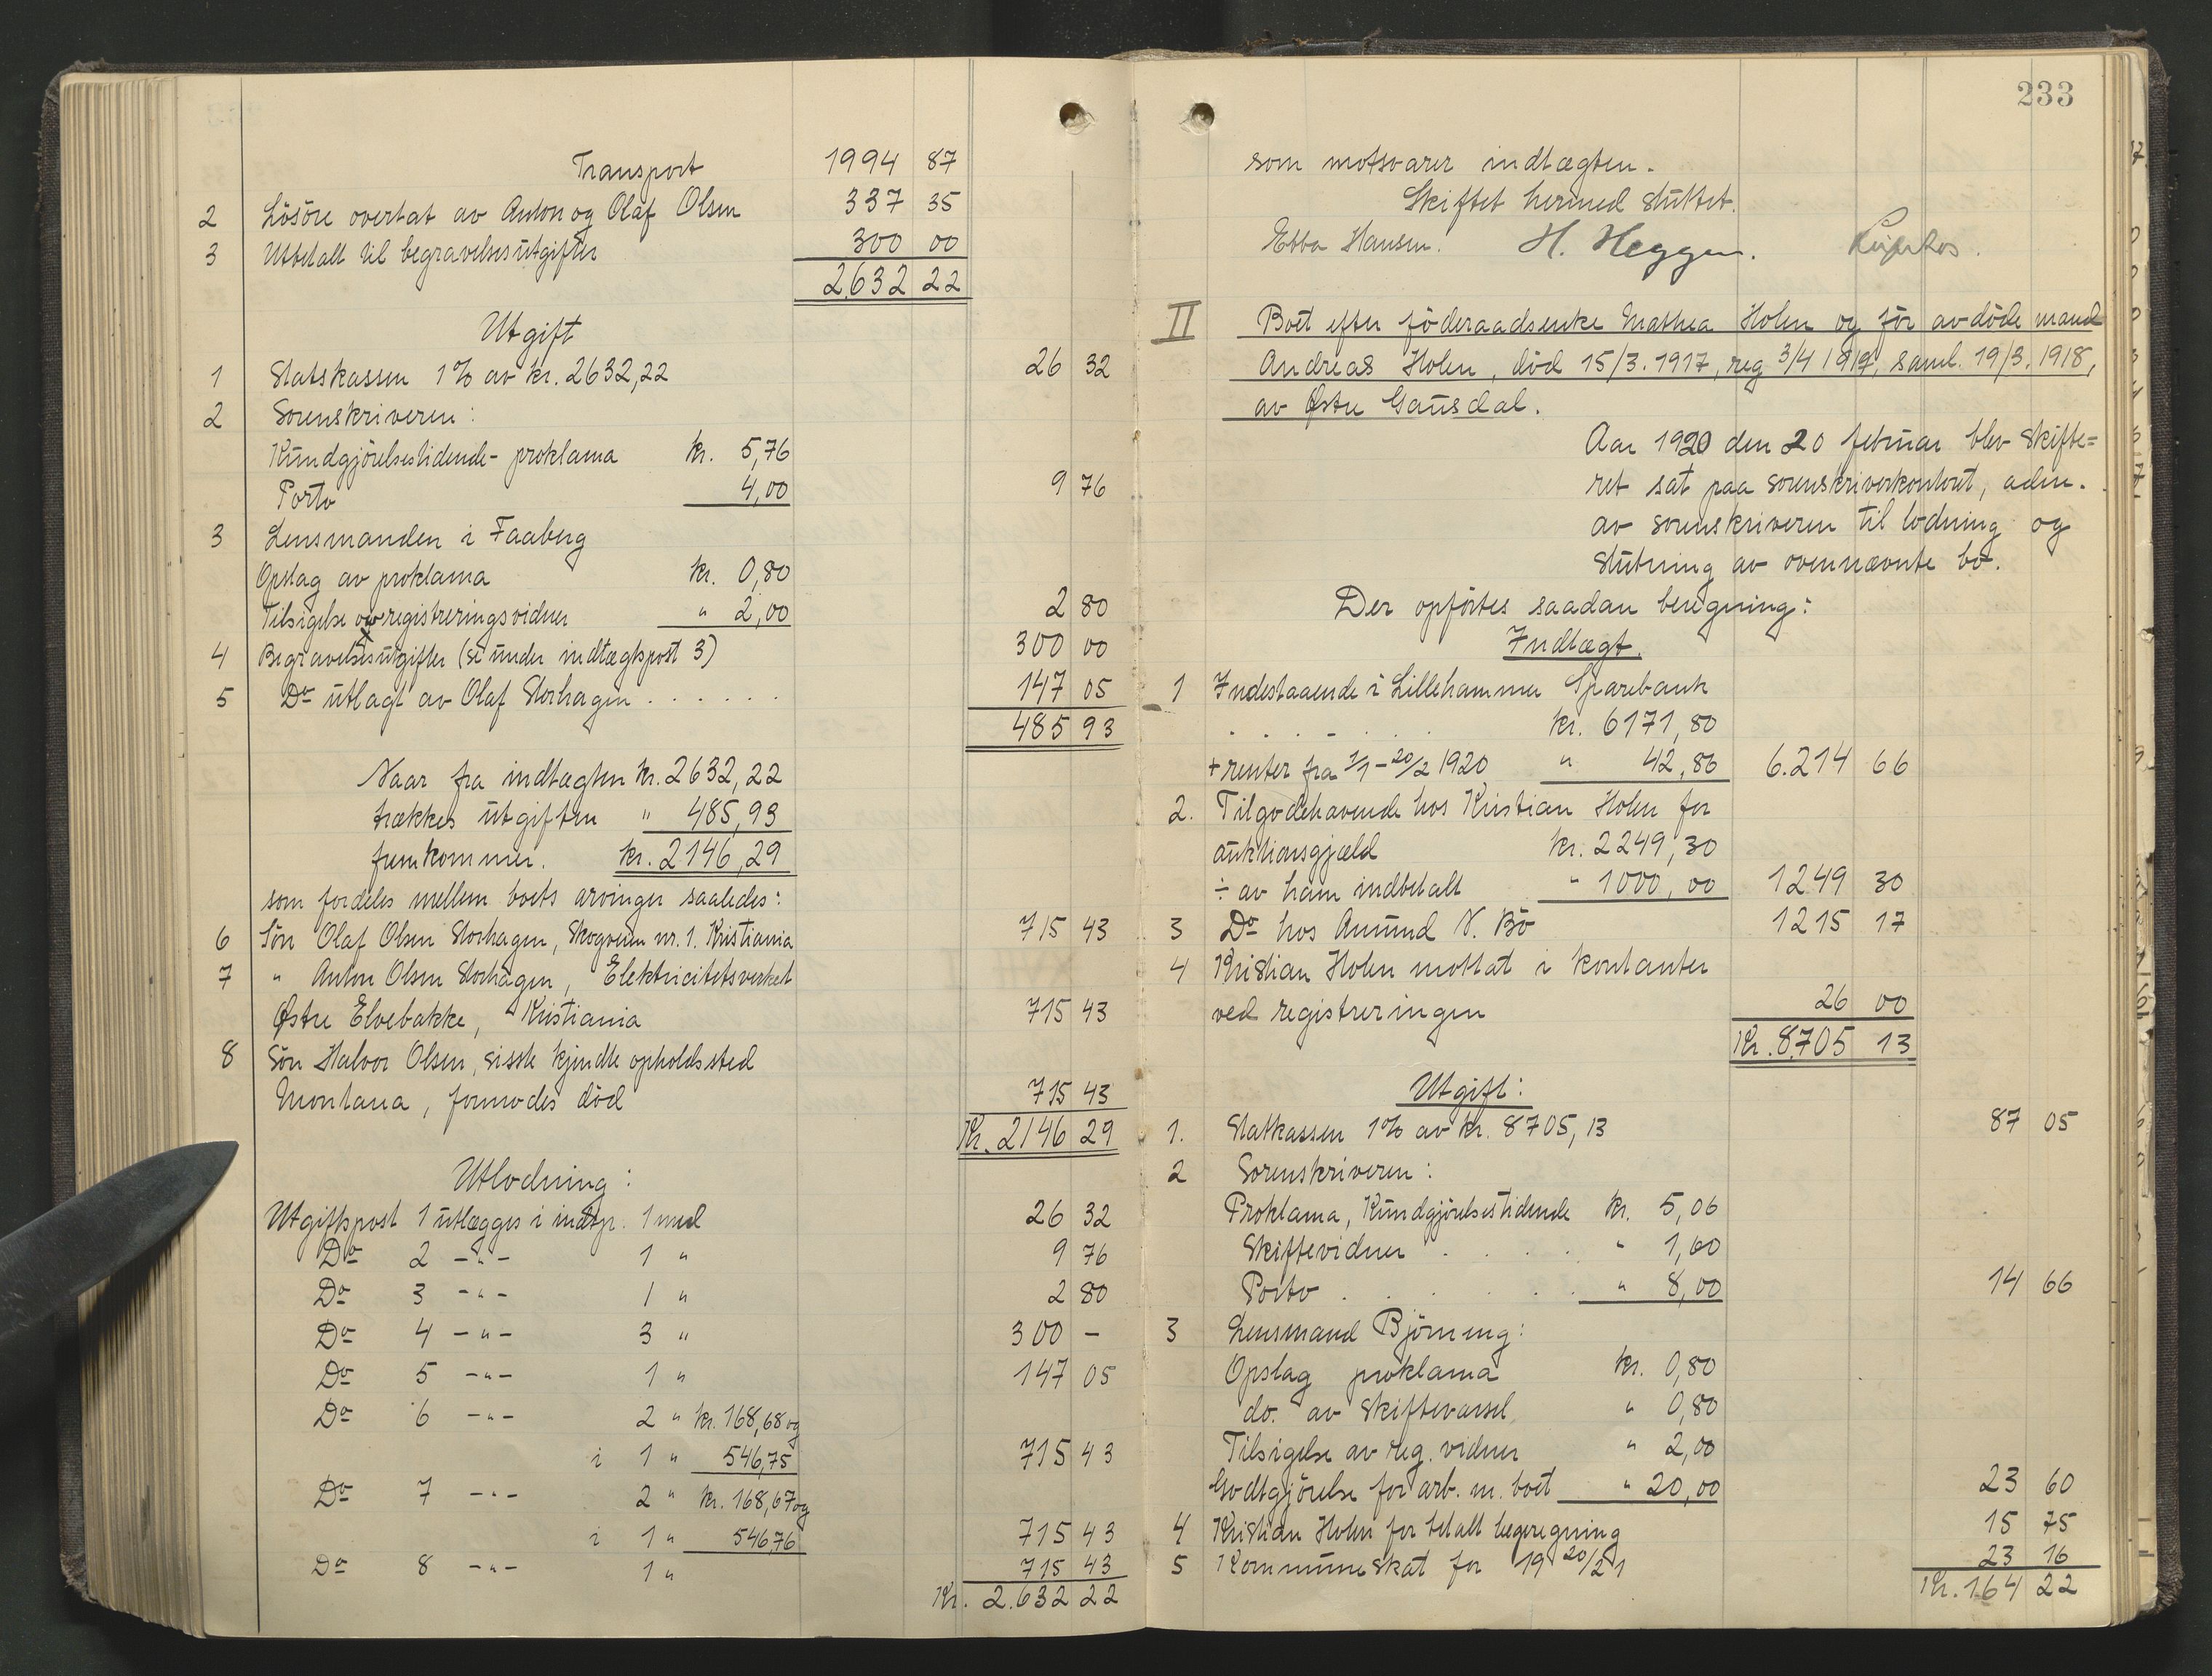 Transport 1994 87
2 Lösöre overtat av Anton og Olaf Olsen 337 35
3 Utbetalt til begravelsesutgifter 300 00
2632 22
Utgift
1 Statskassen 1% av kr. 2632,22 26 32
2 Sorenskriveren:
Kundgjörelsestidende- proklama kr. 5,76
Porto 4,00 9 76
3 Lensmanden i Faaberg
Opslag av proklama kr. 0,80
Tilsigelse av registreringsvidner " 2,00 2 80
4 Begravelsesutgifter (se under indtægtspost 3) 300 00
5 Do utlagt av Olaf Storhagen . . . . . . 147 05
485 93
Naar fra indtægten kr. 2632,22
trækkes utgiften " 485,93
fremkommer. kr. 2146,29
som fordeles mellem boets arvinger saaledes:
6 Sön Olaf Olsen Storhagen, Skogveien nr. 1. Kristiania 715 43
7 " Anton Olsen Storhagen, Elektricitetsverket
Østre Elvebakke, Kristiania 715 43
8 Sön Halvor Olsen, sisste kjendte opholdssted
Montana, formodes död 715 43
Kr. 2146 29
Utlodning:
Utgiftspost 1 utlægges i indtgp. 1 med 26 32
Do 2 -"- 1 " 9 76
Do 3 -"- 1 " 2 80
Do 4 -"- 3 " 300 -
Do 5 -"- 1 " 147 05
Do 6 -"- 2 " kr. 168,68 og
i 1 " 546,75 715 43
Do 7 -"- 2 " kr. 168,67 og
i 1 " 546,76 715 43
Do 8 -"- 1 " 715 43
Kr. 2.632 22
233
som motsvarer indtægten.
Skiftet hermed sluttet.
Ebba Hansen. H. Heggen.
II Boet efter föderaadsenke Mathea Holen og för avdöde mand
Andreas Holen, död 15/3. 1917, reg 3/4 1917, saml. 19/3. 1918,
av Østre Gausdal.
Aar 1920 den 20 februar blev skifte=
ret sat paa sorenskriverkontoret, adm.
av sorenskriveren til lodning og
slutning av ovennævnte bo.
Der opförtes saadan beregning:
Indtægt.
1 Indestaaende i Lillehammer Sparebank
. . . . . . kr. 6171,80
+ renter fra 1/1 - 20/2 1920 " 42,86 6.214 66
2. Tilgodehavende hos Kristian Holen for
auktionsgjæld kr. 2249,30
÷ av ham indbetalt " 1000,00 1249 30
3 Do hos Amund N. Bö 1215 17
4 Kristian Holen mottat i kontanter
ved registreringen 26 00
Kr. 8705 13
Utgift:
1. Statkassen 1% av kr. 8705,13 87 05
2 Sorenskriveren:
Proklama, Kundgjörelsestidende kr. 5,06
Skiftevidner . . . . " 1,60
Porto . . . . . " 8,00 14 66
3 Lensmand Björning:
Opslag proklama kr. 0,80
do. av skiftevarsel " 0,80
Tilsigelse av reg. vidner " 2,00
Godtgjörelse for arb. m. boet " 20,00 23 60
4 Kristian Holen for betalt lægeregning 15 75
5 Kommuneskat for 19 20/21 23 16
Kr. 164 22